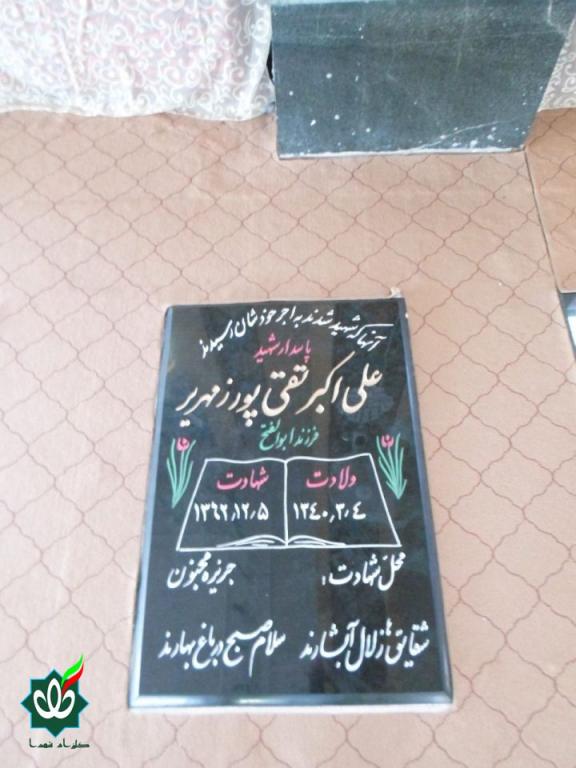 آنها که شهید شدند به اجر خودشان رسیدند
پاسدار شهید
علی اکبر تقی پور زمهریر
فرزند ابوالفتح
ولادت شهادت
۱۳۴۰,۳,۴ ۱۳۶۲,۱۲,۵
محل شهادت: جزیره مجنون
شقایق‌ها زلال آبشارند سلام صبح در باغ بهارند
گلزار شهدا